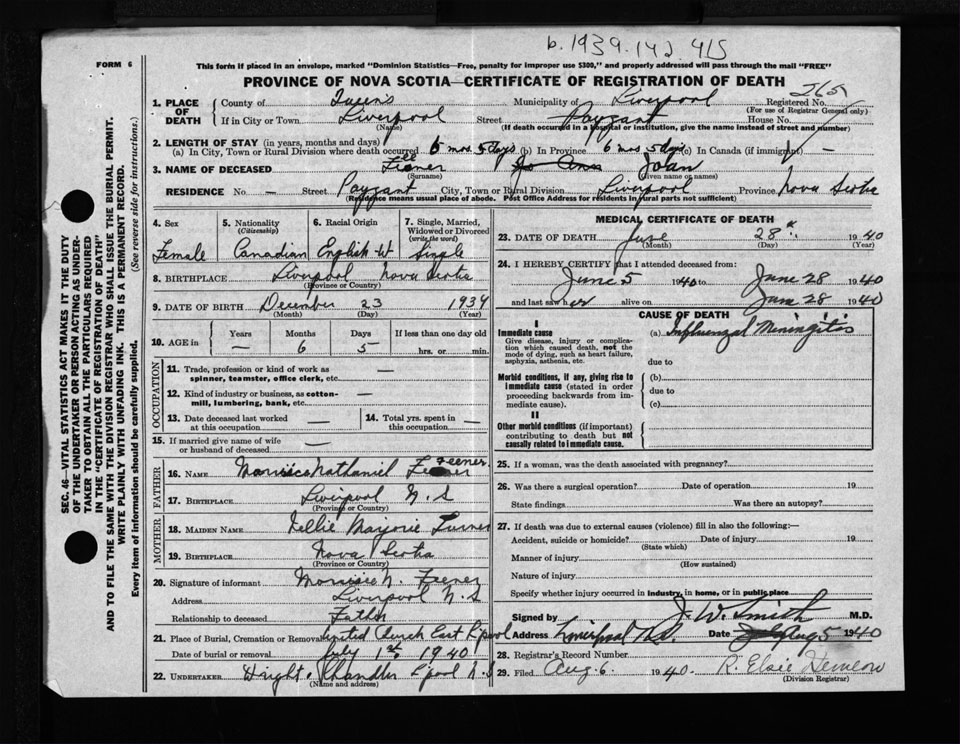 b. 1939.142 415
FORM 6
This form if placed in an envelope, marked "Dominion Statistics—Free, penalty for improper use $300," and properly addressed will pass through the mail "FREE"
PROVINCE OF NOVA SCOTIA—CERTIFICATE OF REGISTRATION OF DEATH
SEC. 46—VITAL STATISTICS ACT MAKES IT THE DUTY
OF THE UNDERTAKER OR PERSON ACTING AS UNDER-
TAKER TO OBTAIN ALL THE PARTICULARS REQUIRED
IN THE "CERTIFICATE OF REGISTRATION OF DEATH"
AND TO FILE THE SAME WITH THE DIVISION REGISTRAR WHO SHALL ISSUE THE BURIAL PERMIT.
WRITE PLAINLY WITH UNFADING INK. THIS IS A PERMANENT RECORD.
Every item of information should be carefully supplied. (See reverse side for instructions.)
1. PLACE OF DEATH County of Queens Municipality of Liverpool Registered No.
(For use of Registrar General only)
If in City or Town Liverpool Street Payzant House No.
(Name) (If death occurred in a hospital or institution, give the name instead of street and number)
2. LENGTH OF STAY (in years, months and days)
(a) In City, Town or Rural Division where death occurred 6 mos 5 days (b) In Province 6 mos 5 days (c) In Canada (if immigrant) —
3. NAME OF DECEASED Feener Joan
(Surname) (Given name or names)
RESIDENCE No. — Street Payzant City, Town or Rural Division Liverpool Province Nova Scotia
(Residence means usual place of abode. Post Office Address for residents in rural parts not sufficient)
4. Sex 5. Nationality 6. Racial Origin 7. Single, Married,
(Citizenship) Widowed or Divorced
(write the word)
Female Canadian English Single
8. BIRTHPLACE Liverpool Nova Scotia
(Province or Country)
9. DATE OF BIRTH December 23 1939
(Month) (Day) (Year)
10. AGE in Years Months Days If less than one day old
— 6 5 hrs. or min.
OCCUPATION
11. Trade, profession or kind of work as
spinner, teamster, office clerk, etc. —
12. Kind of industry or business, as cotton-
mill, lumbering, bank, etc. —
13. Date deceased last worked
at this occupation —
14. Total yrs. spent in
this occupation —
15. If married give name of wife
or husband of deceased —
FATHER
Feener
16. NAME Nathaniel
17. BIRTHPLACE Liverpool N.S
(Province or Country)
MOTHER
18. MAIDEN NAME Nellie Marjorie Turner
19. BIRTHPLACE Nova Scotia
(Province or Country)
20. Signature of informant N. Feener
Address Liverpool N.S
Relationship to deceased Father
21. Place of Burial, Cremation or Removal United Church East L'pool
Date of burial or removal July 1st 1940
22. UNDERTAKER Wright, Chandler L'pool N.S
(Name and address)
MEDICAL CERTIFICATE OF DEATH
23. DATE OF DEATH June 28th 1940
(Month) (Day) (Year)
24. I HEREBY CERTIFY that I attended deceased from:
June 5 1940 to June 28 1940
and last saw her alive on June 28 1940
CAUSE OF DEATH
I
Immediate cause (a) Influenzal Meningitis
Give disease, injury or complica-
tion which caused death, not the
mode of dying, such as heart failure,
asphyxia, asthenia, etc. due to
Morbid conditions, if any, giving rise to
immediate cause (stated in order
proceeding backwards from im-
mediate cause).
(b)
due to
(c)
II
Other morbid conditions (if important)
contributing to death but not
causally related to immediate cause.
25. If a woman, was the death associated with pregnancy?
26. Was there a surgical operation? Date of operation 19
State findings Was there an autopsy?
27. If death was due to external causes (violence) fill in also the following:—
Accident, suicide or homicide? Date of injury 19
(State which)
Manner of injury
(How sustained)
Nature of injury
Specify whether injury occurred in industry, in home, or in public place
Signed by J. W. Smith M.D.
Address Liverpool N.S. Date Aug 5 1940
28. Registrar's Record Number
29. Filed Aug. 6. 1940. R. Elsie
(Division Registrar)